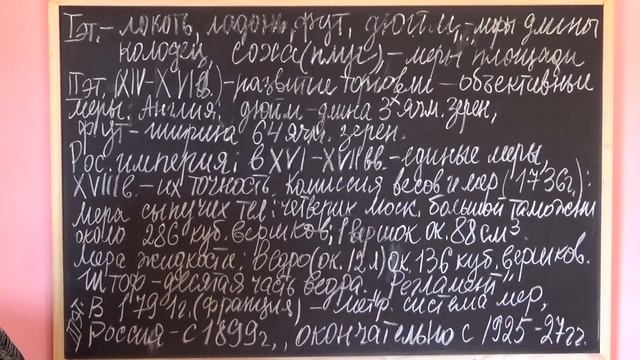 I эт. - локоть, ладонь, фут, дюйм, - меры длины
колодец, соха (плуг) - меры площади
II эт. (XIV-XVIII в.) - развитие торговли - объективные
меры: Англия: дюйм - длина 3х ячм. зерен,
фут - ширина 64 ячм. зерен.
Рос. империя: в XVI-XVII вв. - единые меры,
XVIII в. - их точность, Комиссия весов и мер (1736г.):
мера сыпучих тел: четверик моск. большой таможни
около 286 куб. вершков; 1 вершок ок. 88 см³.
Мера жидкости: Ведро (ок. 12 л) ок. 136 куб. вершков.
Штоф - десятая часть ведра. "Регламент"
III эт: В 1791г. (Франция) - метр. система мер,
Россия - с 1899г., окончательно с 1925-27гг.